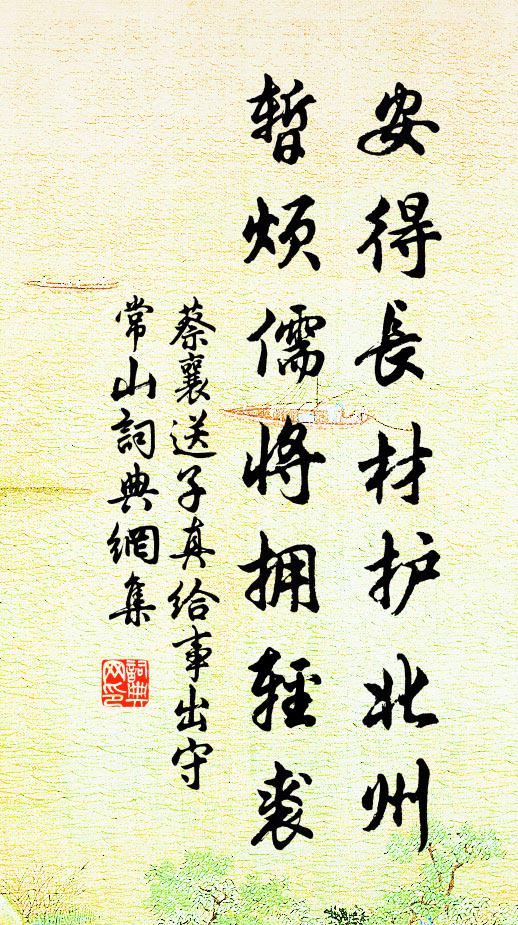 安得長材护北州
暫烦儒将拥輕裘
蔡襄送子真给事出守
常山詞典網集
詞典网印